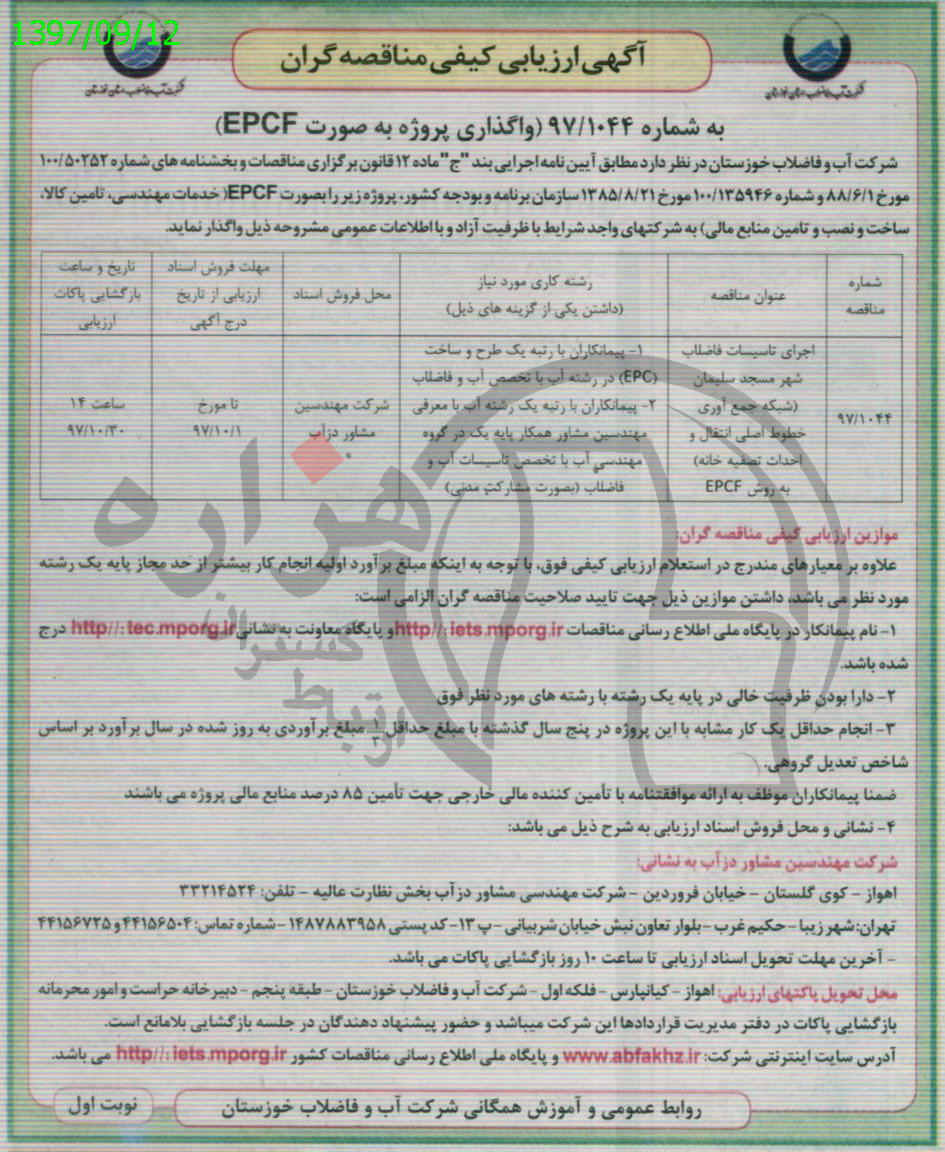 1397/09/12
آگهی ارزیابی کیفی مناقصه گران
به شماره ۹۷/۱۰۴۴ (واگذاری پروژه به صورت EPCF)
شرکت آب و فاضلاب خوزستان در نظر دارد مطابق آیین نامه اجرایی بند "ج" ماده ۱۲ قانون برگزاری مناقصات و بخشنامه های شماره ۱۰۰/۵۰۲۵۲
مورخ ۸۸/۶/۱ و شماره ۱۰۰/۱۳۵۹۴۶ مورخ ۱۳۸۵/۸/۲۱ سازمان برنامه و بودجه کشور، پروژه زیر را بصورت EPCF( خدمات مهندسی، تامین کالا،
ساخت و نصب و تامین منابع مالی) به شرکتهای واجد شرایط با ظرفیت آزاد و با اطلاعات عمومی مشروحه ذیل واگذار نماید.
شماره
مناقصه
عنوان مناقصه
رشته کاری مورد نیاز
(داشتن یکی از گزینه های ذیل)
محل فروش اسناد
مهلت فروش اسناد
ارزیابی از تاریخ
درج آگهی
تاریخ و ساعت
بازگشایی پاکات
ارزیابی
۹۷/۱۰۴۴
اجرای تاسیسات فاضلاب
شهر مسجد سلیمان
(شبکه جمع آوری
خطوط اصلی انتقال و
احداث تصفیه خانه)
به روش EPCF
۱- پیمانکاران با رتبه یک طرح و ساخت
(EPC) در رشته آب با تخصص آب و فاضلاب
۲- پیمانکاران با رتبه یک رشته آب با معرفی
مهندسین مشاور همکار پایه یک در گروه
مهندسی آب با تخصص تاسیسات آب و
فاضلاب (بصورت مشارکت مدنی)
شرکت مهندسین
مشاور دزآب
تا مورخ
۹۷/۱۰/۱
ساعت ۱۴
۹۷/۱۰/۳۰
موازین ارزیابی کیفی مناقصه گران:
علاوه بر معیارهای مندرج در استعلام ارزیابی کیفی فوق، با توجه به اینکه مبلغ برآورد اولیه انجام کار بیشتر از حد مجاز پایه یک رشته
مورد نظر می باشد، داشتن موازین ذیل جهت تایید صلاحیت مناقصه گران الزامی است:
۱- نام پیمانکار در پایگاه ملی اطلاع رسانی مناقصات http//: iets.mporg.ir و پایگاه معاونت به نشانی http//: tec.mporg.ir درج
شده باشد.
۲- دارا بودن ظرفیت خالی در پایه یک رشته با رشته های مورد نظر فوق
۳- انجام حداقل یک کار مشابه با این پروژه در پنج سال گذشته با مبلغ حداقل ۱/۳ مبلغ برآوردی به روز شده در سال برآورد بر اساس
شاخص تعدیل گروهی.
ضمنا پیمانکاران موظف به ارائه موافقتنامه با تأمین کننده مالی خارجی جهت تأمین ۸۵ درصد منابع مالی پروژه می باشند
۴- نشانی و محل فروش اسناد ارزیابی به شرح ذیل می باشد:
شرکت مهندسین مشاور دزآب به نشانی:
اهواز - کوی گلستان - خیابان فروردین - شرکت مهندسی مشاور دزآب بخش نظارت عالیه - تلفن: ۳۳۲۱۴۵۲۴
تهران: شهر زیبا - حکیم غرب - بلوار تعاون نبش خیابان شربیانی - پ ۱۳- کد پستی ۱۴۸۷۸۸۳۹۵۸ - شماره تماس: ۴۴۱۵۶۵۰۴ و ۴۴۱۵۶۷۲۵
- آخرین مهلت تحویل اسناد ارزیابی تا ساعت ۱۰ روز بازگشایی پاکات می باشد.
محل تحویل پاکتهای ارزیابی: اهواز - کیانپارس - فلکه اول - شرکت آب و فاضلاب خوزستان - طبقه پنجم - دبیرخانه حراست و امور محرمانه
بازگشایی پاکات در دفتر مدیریت قراردادها این شرکت میباشد و حضور پیشنهاد دهندگان در جلسه بازگشایی بلامانع است.
آدرس سایت اینترنتی شرکت: www.abfakhz.ir و پایگاه ملی اطلاع رسانی مناقصات کشور http//: iets.mporg.ir می باشد.
روابط عمومی و آموزش همگانی شرکت آب و فاضلاب خوزستان
نوبت اول
هزاره